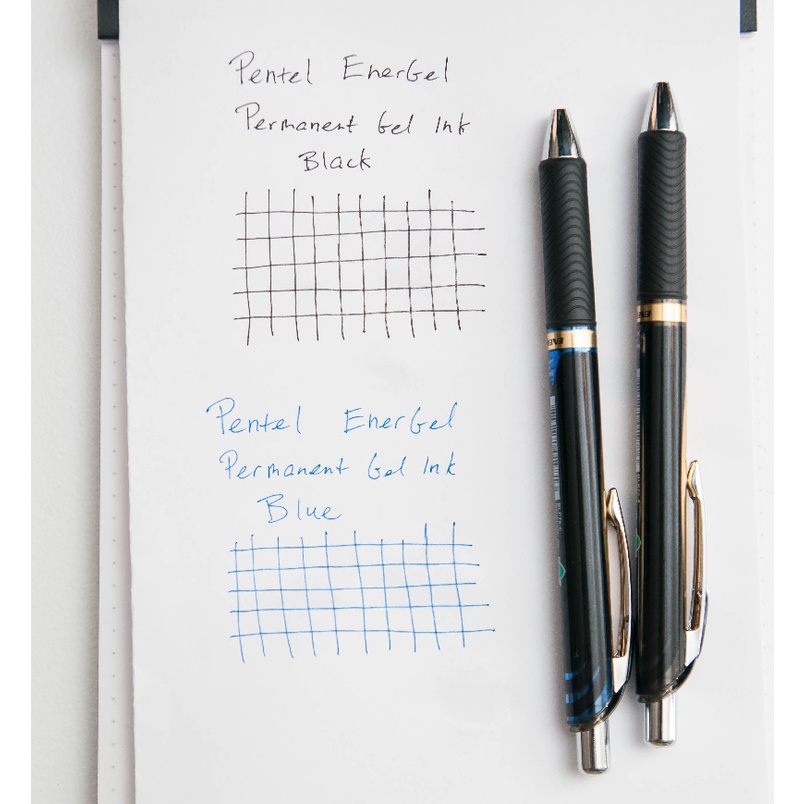 Pentel EnerGel
Permanent Gel Ink
Black
Pentel EnerGel
Permanent Gel Ink
Blue